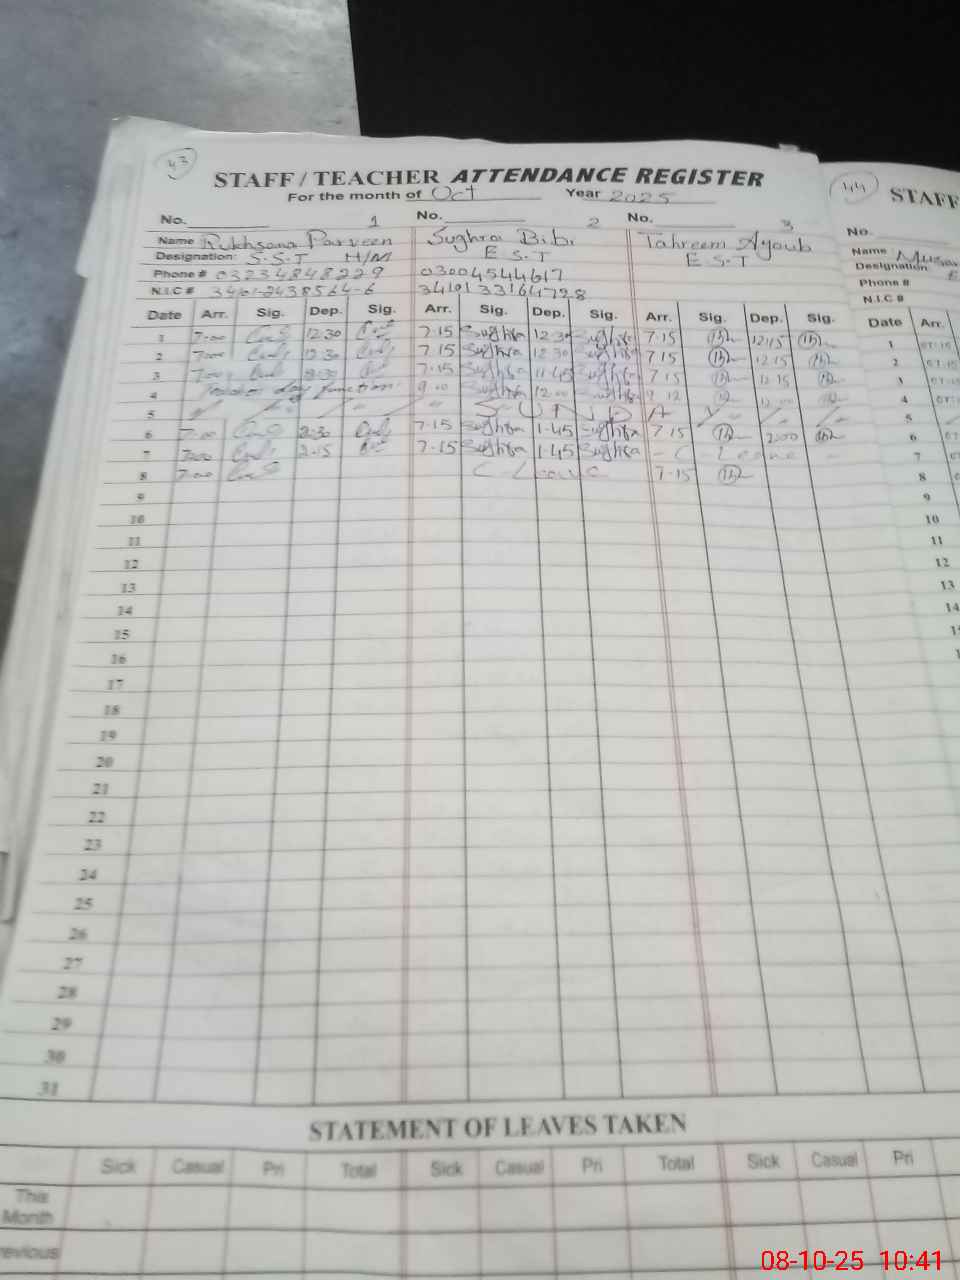 43
STAFF / TEACHER ATTENDANCE REGISTER
For the month of Oct Year 2025
No. 1 No. 2 No. 3
Name Rukhsana Parveen Sughra Bibi Tahreem Ayoub
Designation: S.S.T H/M E.S.T E.S.T
Phone # 03234848229 03004544617
N.I.C # 3401-2438564-6 3410133164728
Date Arr. Sig. Dep. Sig. Arr. Sig. Dep. Sig. Arr. Sig. Dep. Sig.
1 7:00 12:30 7:15 Sughra 12:30 Sughra 7:15 12:15
2 7:00 12:30 7:15 Sughra 12:30 Sughra 7:15 12:15
3 7:00 7:15 Sughra 11:45 Sughra 7:15 12:15
4 day function 9:00 Sughra 12:00 Sughra
5 SUNDAY
6 7:00 2:30 7:15 Sughra 1:45 Sughra 7:15 2:00
7 7:00 2:15 7:15 Sughra 1:45 Sughra - C - Leave -
8 7:00 C Leave 7:15
9
10
11
12
13
14
15
16
17
18
19
20
21
22
23
24
25
26
27
28
29
30
31
STATEMENT OF LEAVES TAKEN
Sick Casual Pri Total Sick Casual Pri Total Sick Casual Pri
This
Month
evious
44
STAFF
No.
Name
Designation:
Phone #
N.I.C #
Date Arr.
1
2
3
4
5
6
7
8
9
10
11
12
13
14
08-10-25 10:41